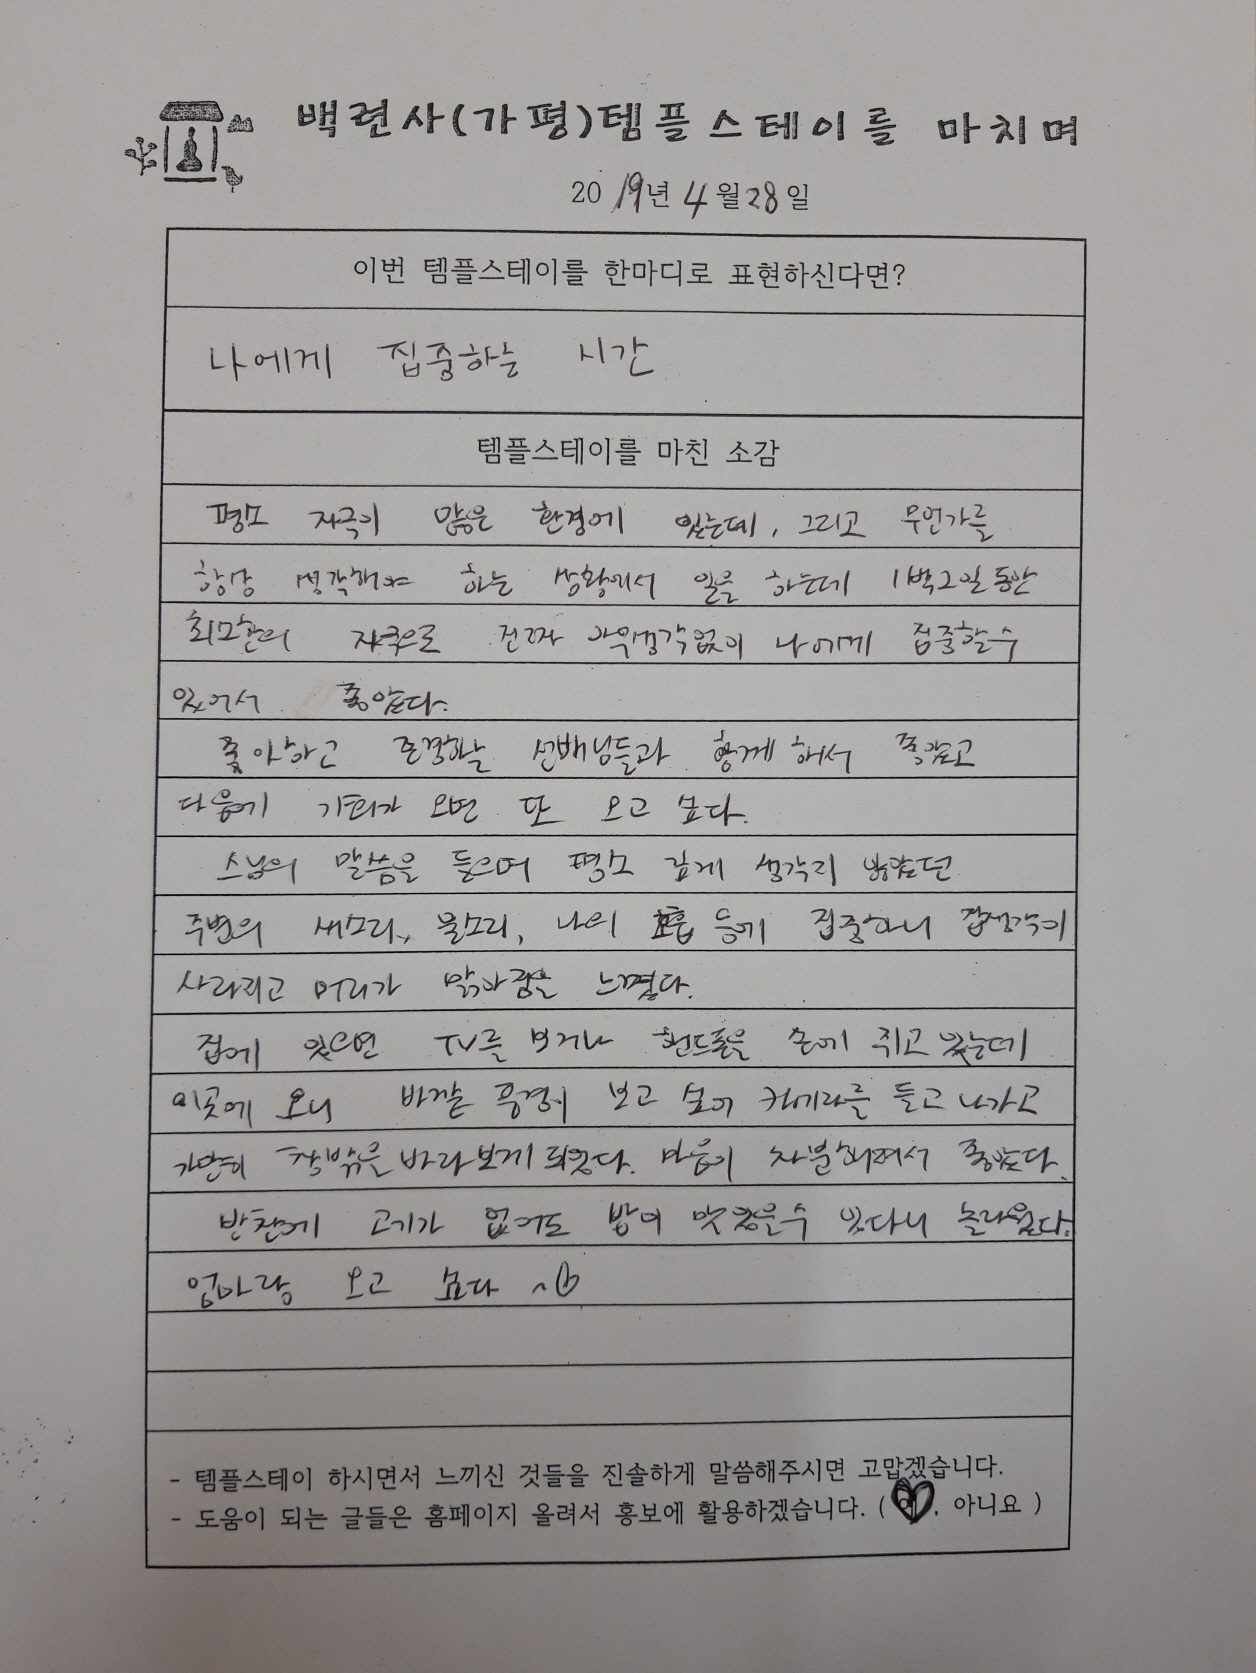 백련사(가평)템플스테이를 마치며
2019년 4월 28일
이번 템플스테이를 한마디로 표현하신다면?
나에게 집중하는 시간
템플스테이를 마친 소감
평소 자극이 많은 환경에 있는데, 그리고 무언가를
항상 생각해야 하는 상황에서 일을 하는데 1박2일동안
최소한의 자극으로 진짜 아무생각없이 나에게 집중할수
있어서 좋았다.
좋아하고 존경하는 선배님들과 함께 해서 좋았고
다음에 기회가 오면 또 오고 싶다.
스님의 말씀을 들으며 평소 깊게 생각지 않았던
주변의 새소리, 물소리, 나의 호흡 등에 집중하니 잡생각이
사라지고 머리가 맑아짐을 느꼈다.
집에 있으면 TV를 보거나 핸드폰을 손에 쥐고 있는데
이곳에 오니 바깥 풍경이 보고 싶어 카메라를 들고 나가고
가만히 창밖을 바라보게 되었다. 마음이 차분해져서 좋았다.
반찬에 고기가 없어도 밥이 맛있을수 있다니 놀라웠다.
엄마랑 오고 싶다 ~
- 템플스테이 하시면서 느끼신 것들을 진솔하게 말씀해주시면 고맙겠습니다.
- 도움이 되는 글들은 홈페이지 올려서 홍보에 활용하겠습니다. ( 예. 아니요 )